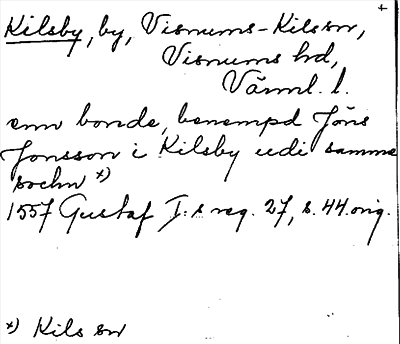 +
Kilsby, by, Visnums-Kils sn,
Visnums hd,
Värml. l.
enn bonde, benempd Jöns
Jonsson i Kilsby udi samma
sochn *)
1557 Gustaf I:s reg. 27, s. 44. orig.
*) Kils sn